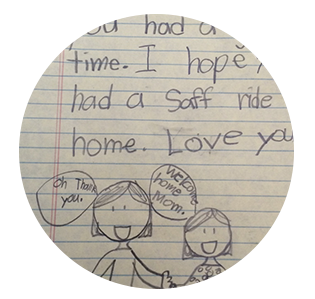 you had a
time. I hope
had a Saff ride
home. Love you
Oh Thank
you.
Welcome
home
Mom.